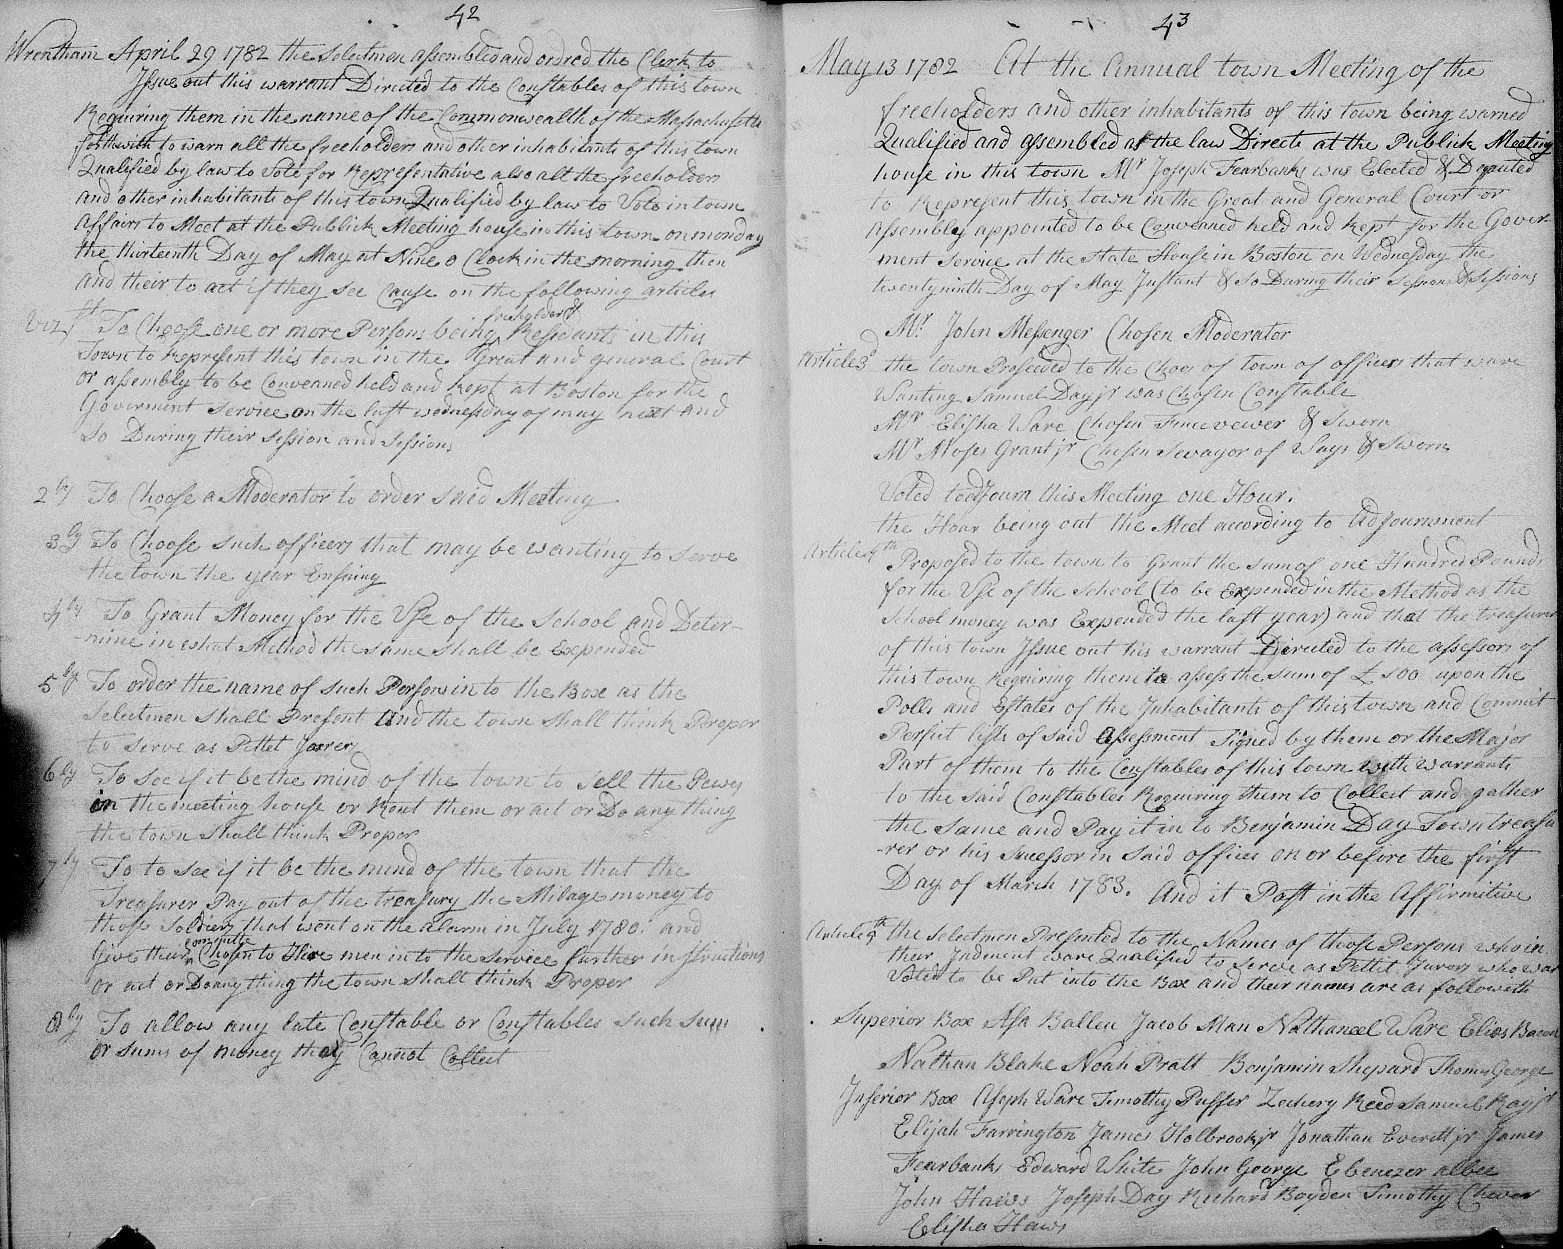 42
Wrentham April 29 1782 the Selectmen assembled and ordred the Clerk to
Issue out this warrant Directed to the Constables of this town
Requiring them in the name of the Commonwealth of the Massachusetts
forthwith to warn all the freeholders and other inhabitants of this town
Qualified by law to Vote for Representative also all the freeholders
and other inhabitants of this town Qualified by law to Vote in town
affairs to Meet at the Publick Meeting house in this town on monday
the thirteenth Day of May at Nine o Clock in the morning then
and their to act if they see Cause on the following articles
Viz 1st To Choose one or more Persons being freeholders & Residants in this
Town to Represent this town in the Great and general Court
or assembly to be Conveaned held and kept at Boston for the
Goverment Service on the last wednesday of may next and
So During their Session and Sessions
2ly To Choose a Moderator to order said Meeting
3ly To Choose such officers that may be wanting to serve
the town the year Ensuing
4ly To Grant Money for the Use of the School and Deter-
-mine in what Method the same shall be Expended
5ly To order the name of such Persons in to the Box as the
Selectmen shall Present and the town shall think Proper
to serve as Pettet Jurers
6ly To see if it be the mind of the town to sell the Pews
in the meeting house or Rent them or act or Do any thing
the town shall think Proper
7ly To to see if it be the mind of the town that the
Treasurer Pay out of the treasury the Milage money to
those Soldiers that went on the alarm in July 1780. and
Give their committe Chosen to Hire men in to the Service further instructions
or act or Do any thing the town shall think Proper
8ly To allow any late Constable or Constables such sum
or sums of money they Cannot Collect
43
May 13 1782 At the Annual town Meeting of the
freeholders and other inhabitants of this town being warned
Qualified and assembled as the law Directs at the Publick Meeting
house in this town Mr Joseph Fearbanks was Elected & Deputed
to Represent this town in the Great and General Court or
Assembly appointed to be Conveaned held and kept for the Gover-
ment Service at the State House in Boston on Wednesday the
twentyninth Day of May Instant & So During their Session & Sessions
Mr John Messenger Chosen Moderator
Article 3d the town Proseeded to the Choes of town of officers that ware
Wanting Samuel Day jr was Chosen Constable
Mr Elisha Ware Chosen Fincevewer & Sworn
Mr Moses Grant jr Chosen Sevayor of Ways & Sworn
Voted to adjourn this Meeting one Hour.
the Hour being out the Meet according to Adjournment
Article 4th Proposed to the town to Grant the sum of one Hundred Pounds
for the Use of the School (to be Expended in the Method as the
School money was Expended the last year) and that the treasurer
of this town Issue out his warrant Directed to the assessors of
this town Requiring them to assess the sum of £100 upon the
Polls and Estates of the Inhabitants of this town and Commit
Perfect lists of said Assessment Signed by them or the Major
Part of them to the Constables of this town with warrants
to the said Constables Requiring them to Collect and gather
the Same and Pay it in to Benjamin Day Town treasu
-rer or his Successor in said office on or before the first
Day of March 1783. And it Past in the Affirmitive
Article 5th the Selectmen Presented to the Names of those Persons who in
their Judment ware Qualified to serve as Pettet Jurors who war
Voted to be Put into the Box and their names are as followeth
Superior Box Asa Ballou Jacob Man Nathanael Ware Elias Bacon
Nathan Blake Noah Pratt Benjamin Shepard Thomas George
Inferior Box Aseph Ware Timothy Puffer Zechery Reed Samuel Ray jr
Elijah Farrington James Holbrook jr Jonathan Everitt jr James
Fearbanks Edward White John George Ebenezer albee
John Haws Joseph Day Richard Boyden Timothy Chever
Elisha Haws